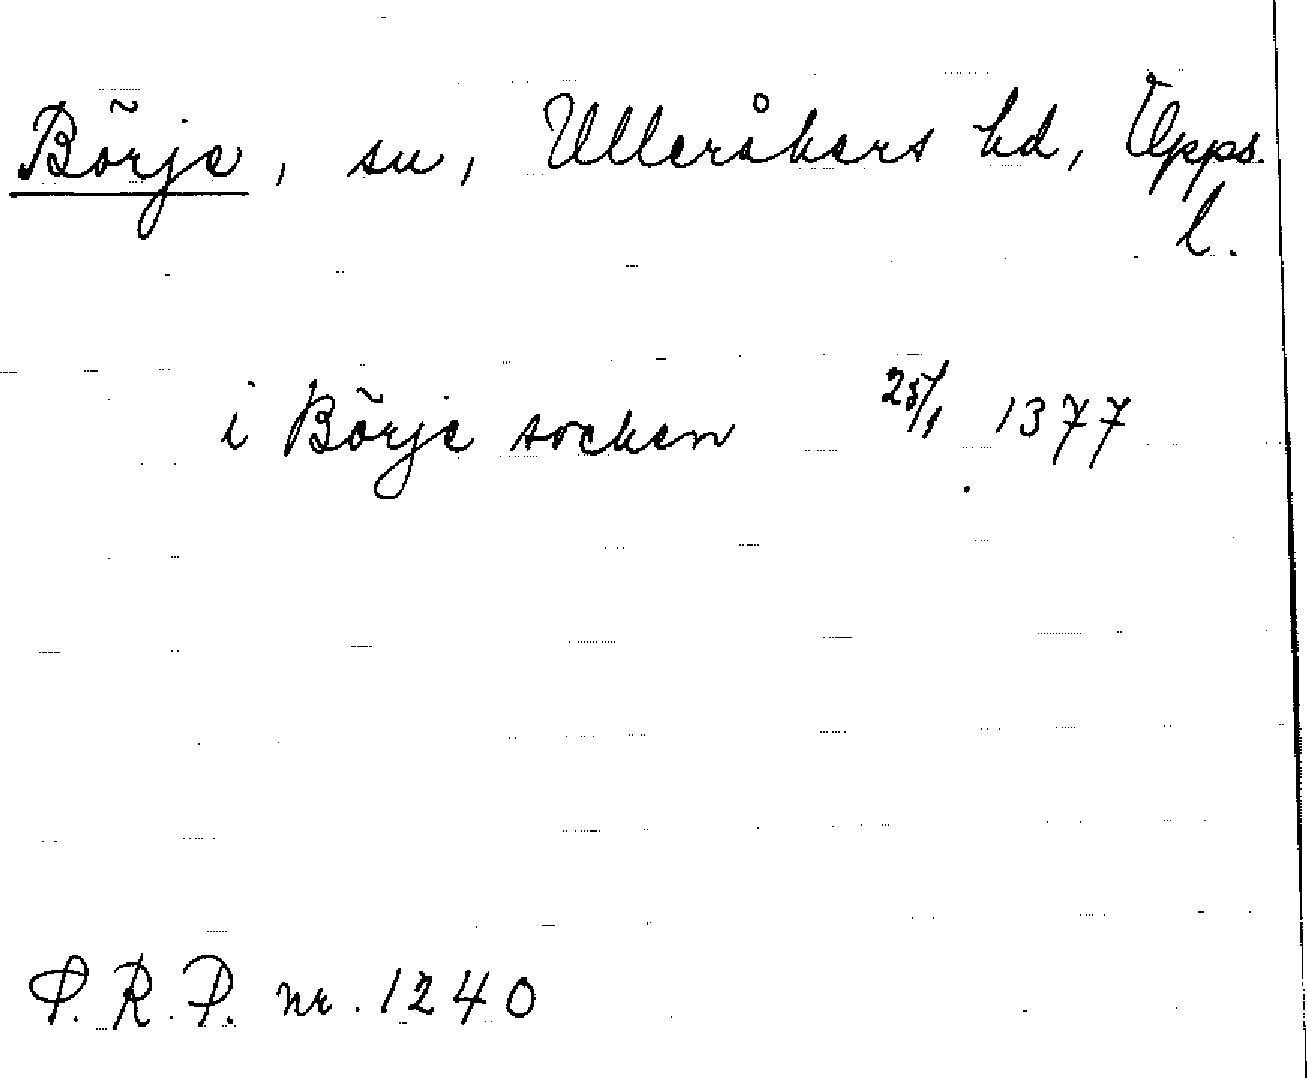 Börje, sn, Ulleråkers hd, Upps.
l.
i Börje socken 25/1 1377
P.R.P. nr. 1240